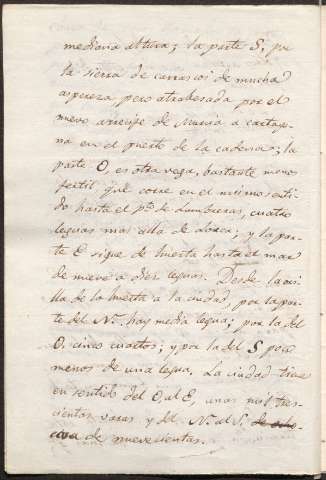 mediana altura; la parte S. por
la sierra de carrascoi de mucha
aspereza pero atrabesada por el
nuevo arrecife de Murcia a cartage-
na en el puerto de la cadena; la
parte O, es otra vega, bastante menos
fertil que corre en el mismo senti-
do hasta el pto. de Lumbreras, cuatro
leguas mas alla de Lorca; y la par-
te E sigue de huerta hasta el mar
de nueve a diez leguas. Desde la ori-
lla de la huerta a la ciudad, por la par-
te del Ne. hay media legua; por la del
O. cinco cuartos; y por la del S poco
menos de una legua. La ciudad tiene
en sentido del O al E, unas mil tres-
cientas varas y del Ne. al S. de
de nuevecientas.